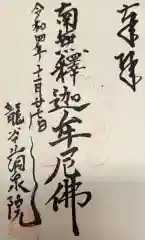 奉拝
南無釋迦牟尼佛
令和四年十二月廿日
龍谷山
泉院